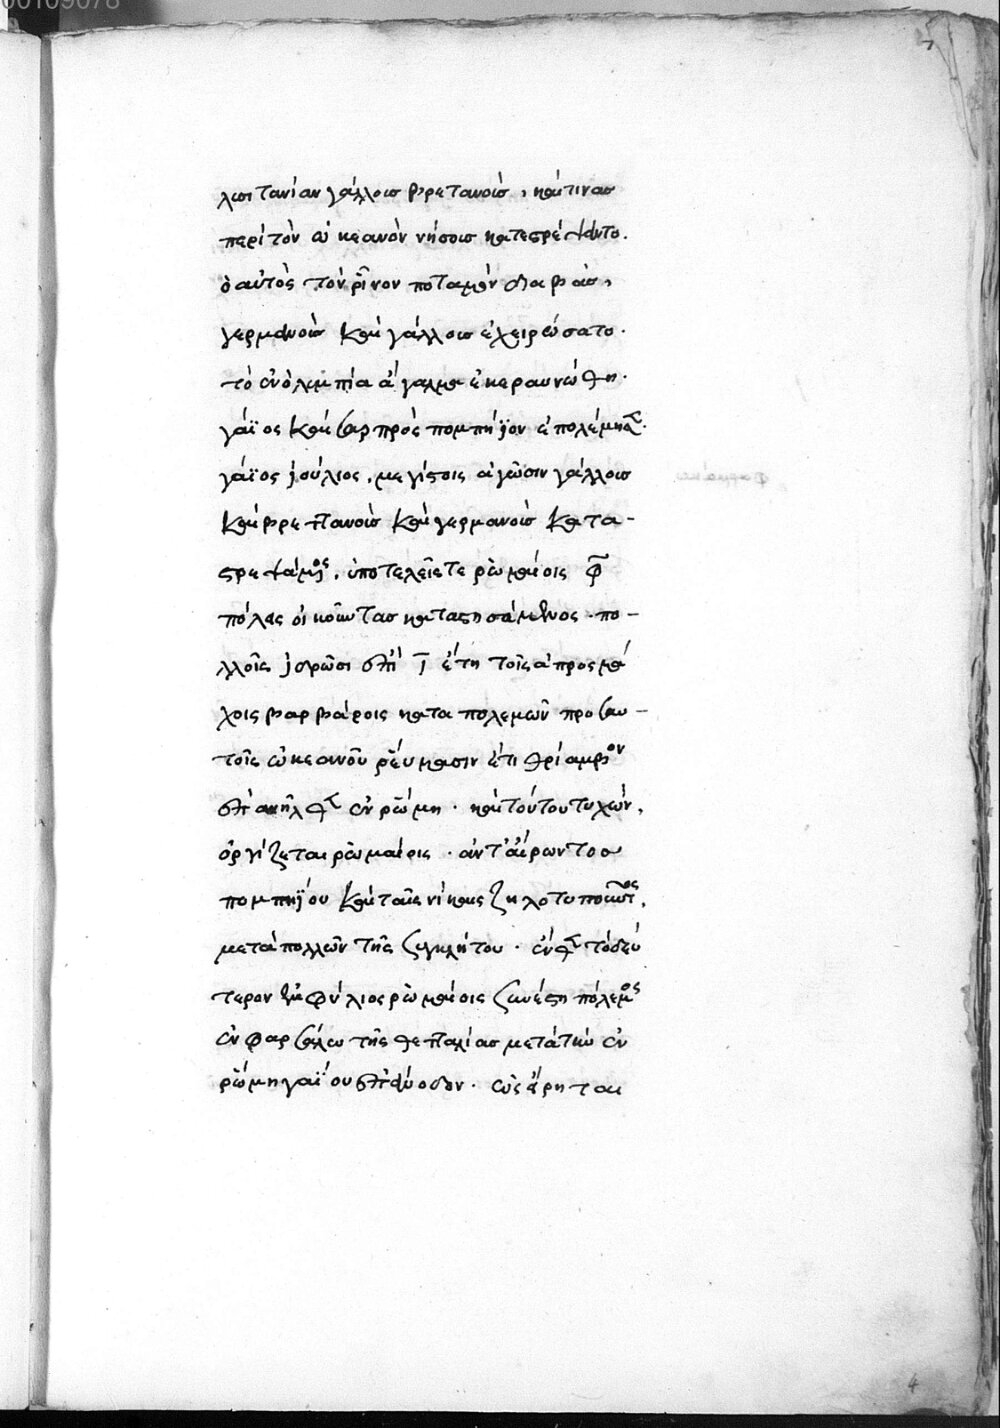 λυσιτανίαν γάλλους βρετανούς, καί τινας
περὶ τὸν ὠκεανὸν νήσους κατεστρέψαντο.
ὁ αὐτὸς τὸν ῥῖνον ποταμὸν διαβὰς,
γερμανοὺς καὶ γάλλους ἐχειρώσατο.
τὸ ἐν ὀλυμπία ἄγαλμα ἐκεραυνώθη.
γάϊος καῖσαρ πρὸς πομπήϊον ἐπολέμησε.
γάϊος ἰούλιος, μεγίστοις ἀγῶσιν γάλλους
καὶ βρεττανοὺς καὶ γερμανοὺς κατα-
στρεψάμενος, ὑποτελεῖς τε ῥωμαίοις φ̅
πόλεις οἰκούντας καταστησάμενος πο-
λλοῖς ἱδρῶσι ἐπὶ ι̅ ἔτη τοῖς ἀπροσμά
χοις βαρβάροις καταπολεμῶν προσαυ-
τοῖς ὠκεανοῦ ῥεύμασιν ἐπὶ θρίαμβον
ἐπανῆλθεν ἐν ῥώμη. καὶ τούτου τυχὼν,
ὀργίζεται ῥωμαίοις. ἀνταίροντος
πομπηΐου καὶ ταῖς νίκαις ζηλοτυποῦντος,
μετὰ πολλῶν τῆς συγκλήτου. ἔνθεν τὸ δεύ
τερον ἐμφύλιος ῥωμαίοις συνέστη πόλεμος
ἐν φαρσάλω τῆς θετταλίας μετὰ τὴν ἐν
ῥώμη γαΐου ἐπάνοδον. ὡς εἴρηται
4